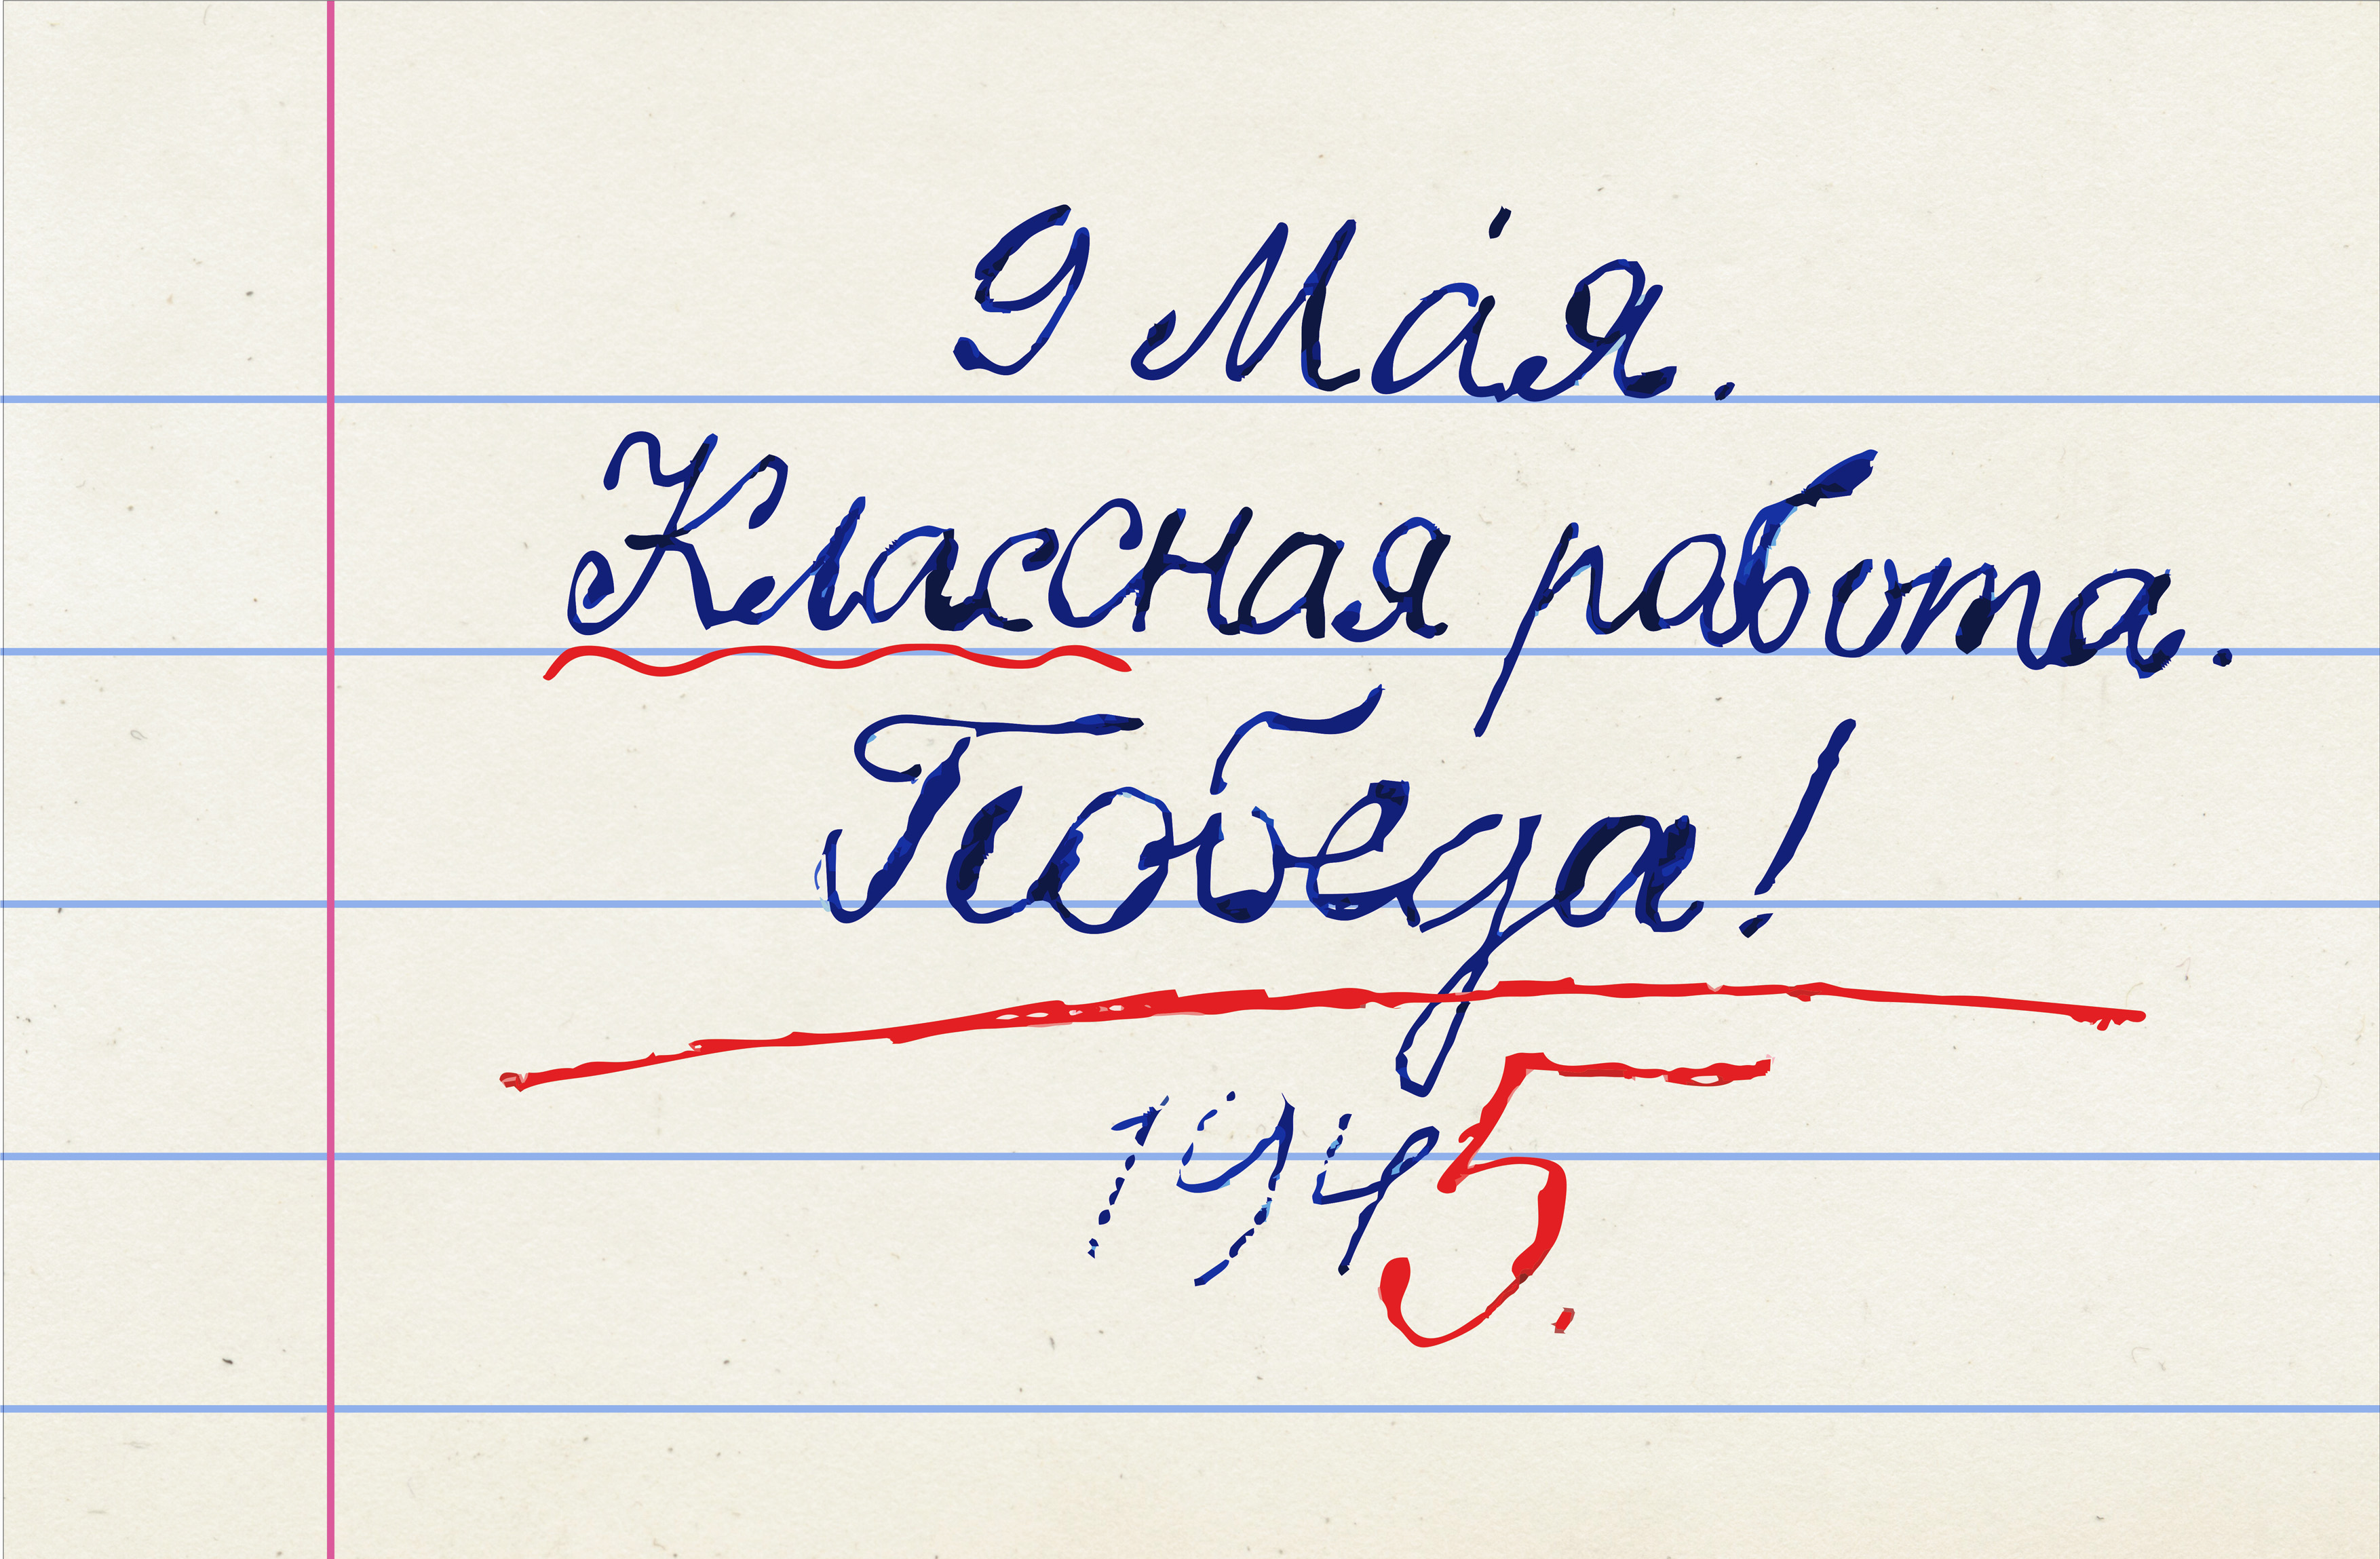 9 Ма́я.
Классная работа.
Победа!
1945.